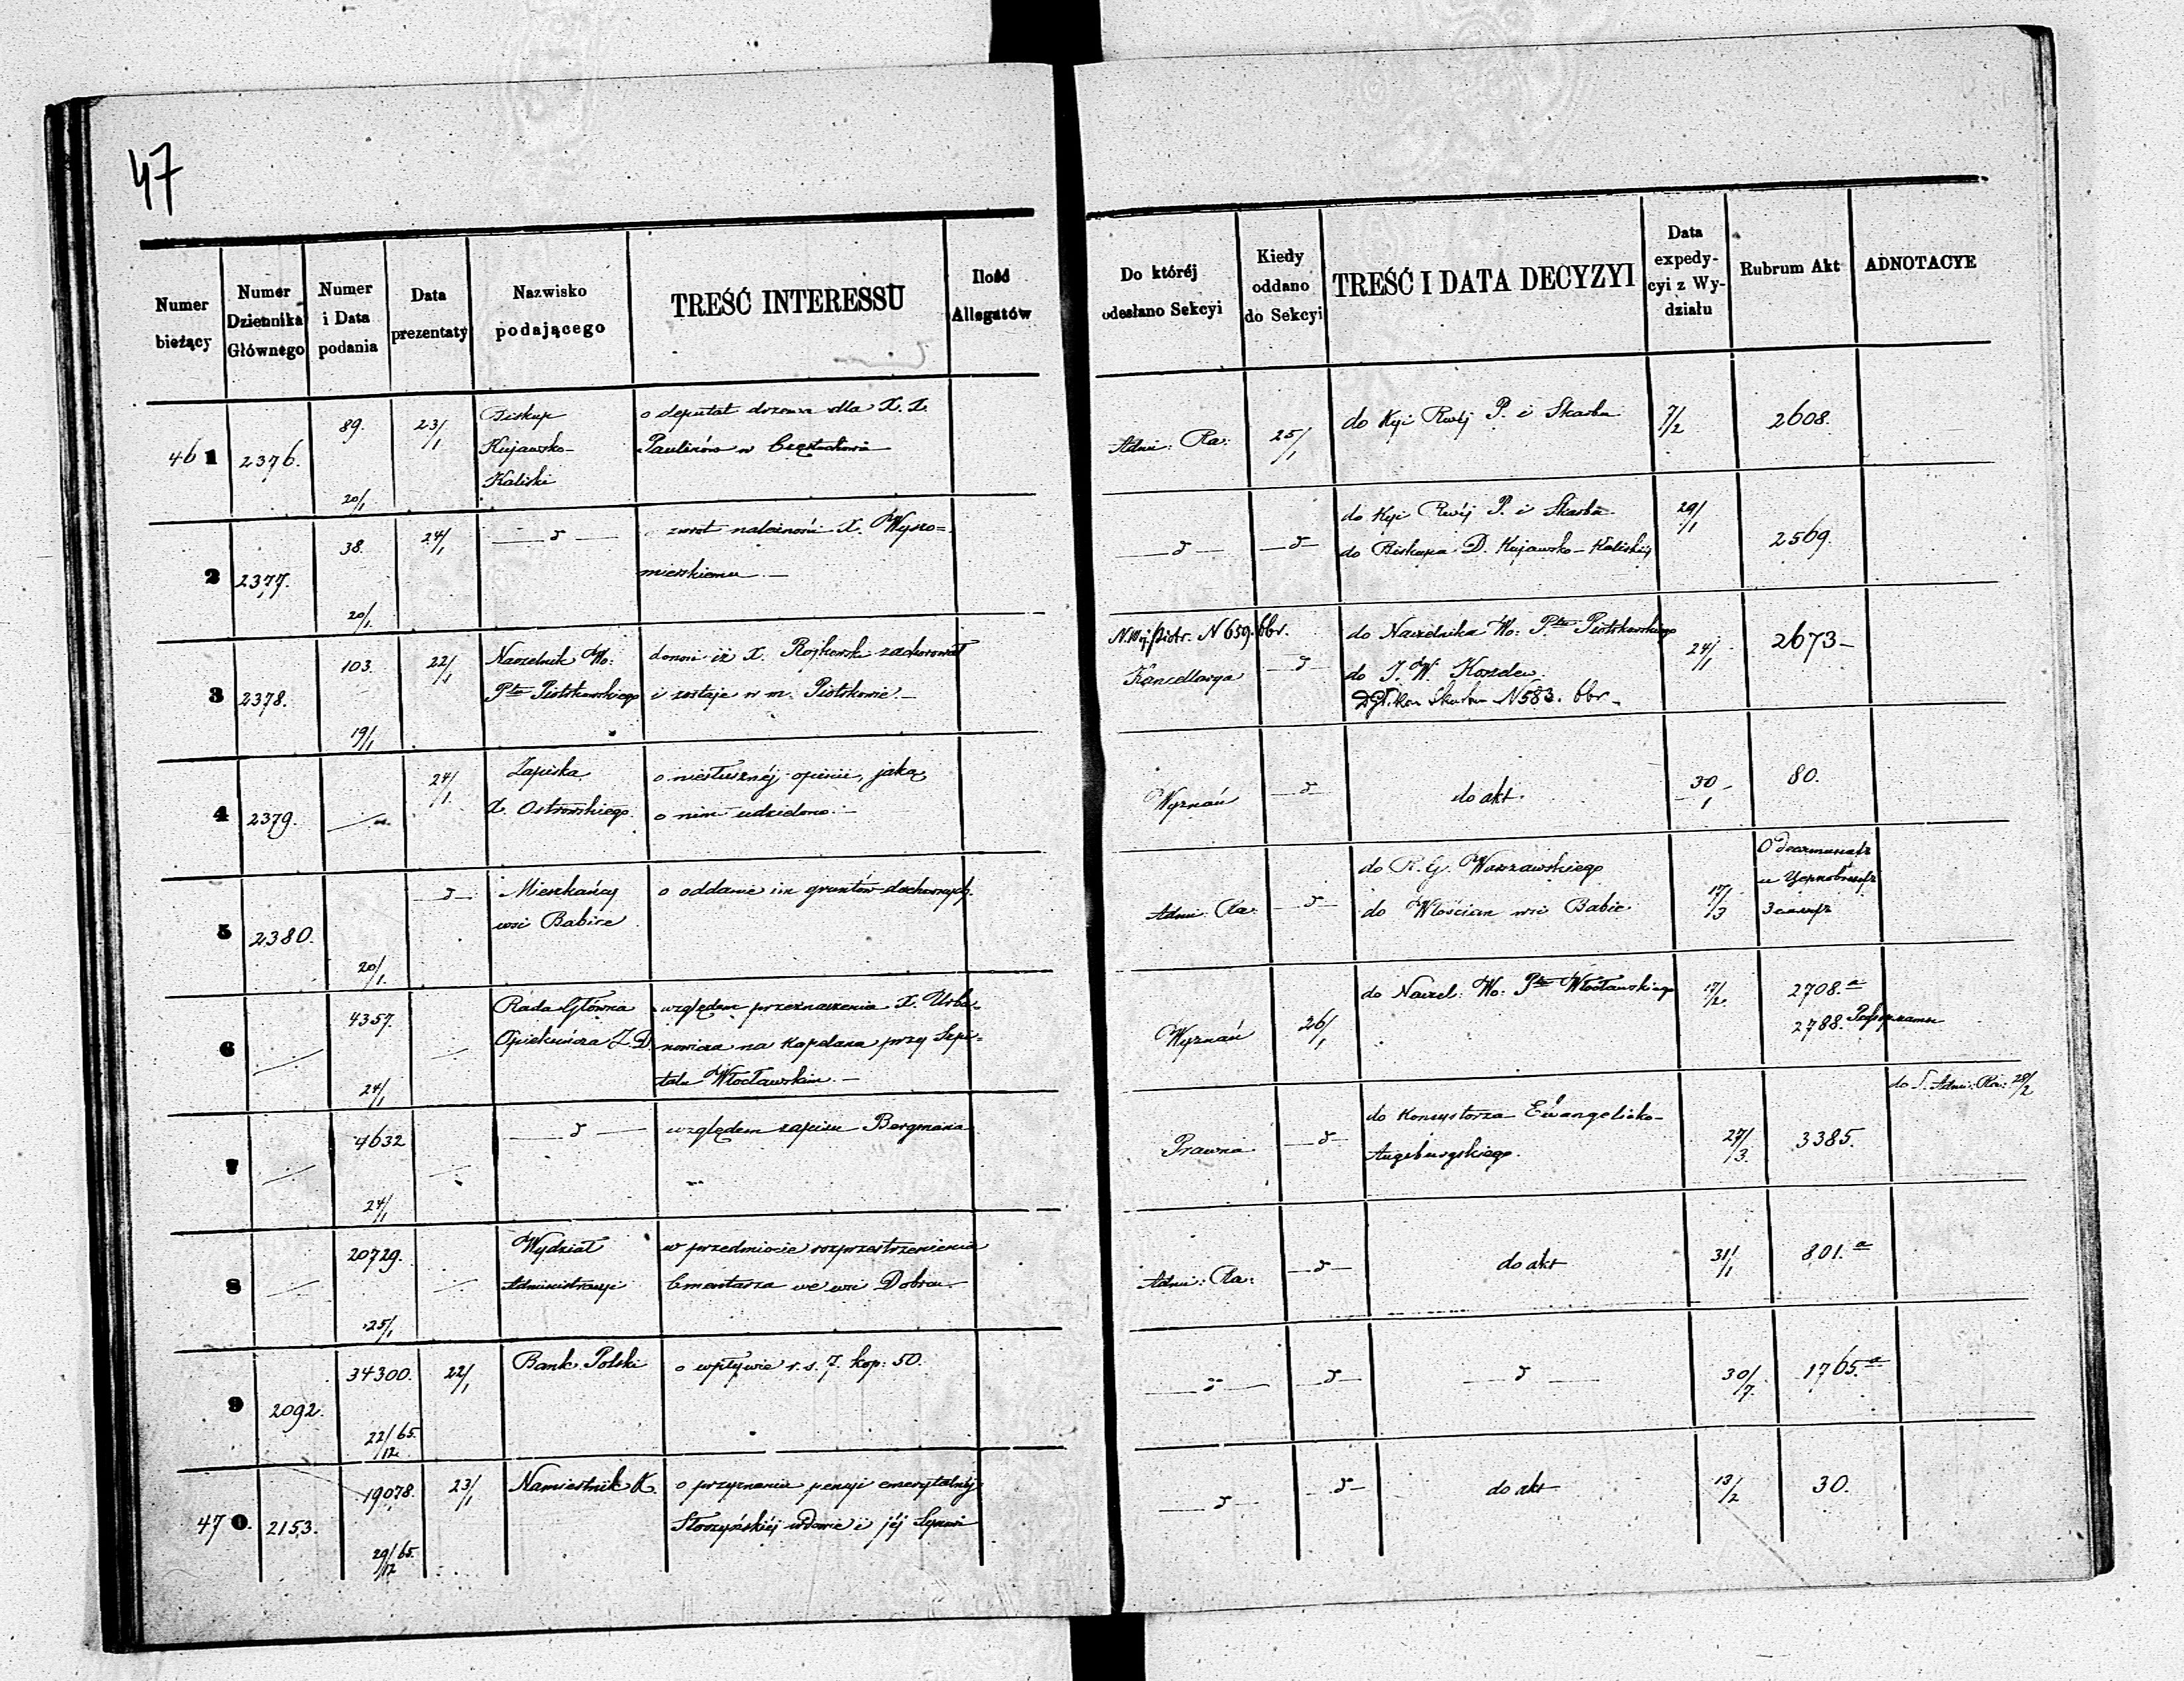 47
Numer bieżący
Numer Dziennika Głównego
Numer i Data podania
Data prezentaty
Nazwisko podającego
TREŚĆ INTERESSU
Ilość Allegatów
Do któréj odesłano Sekcyi
Kiedy oddano do Sekcyi
TREŚĆ I DATA DECYZYI
Data expedycyi z Wydziału
Rubrum Akt
ADNOTACYE
461 2376. 89. 20/1 23/1
Biskup
Kujawsko-
Kaliski
o deputat drzewa dla X. X.
Paulinów w Częstochowie
Admi: Ra: 25/1
do Kyi Rwéj P. i Skarbu
7/2 2608.
2 2377. 38. 20/1 24/1
— d —
zwrot należności X. Wyszo=
mierskiemu. —
— d — — d —
do Kyi Rwéj P. i Skarbu
do Biskupa D. Kujawsko-Kaliskiéj
29/1 2569.
3 2378. 103. 19/1 22/1
Naczelnik Wo:
Ptu Piotrkowskiego
donosi iż X. Rojkowski zachorował
i zostaje w m. Piotrkowie. —
N 659. bbr.
Kancellarya — d —
do Naczelnika Wo: Ptu Piotrkowskiego
do J. W.
Skarbu N 583. bbr.
24/1 2673 —
4 2379. 24/1.
Zapiska
X. Ostrowskiego.
o niesłusznéj opinii, jaką
o nim udzielono. —
Wyznań — d —
do akt.
30/1 80.
5 2380. 20/1. — d —
Mieszkańcy
wsi Babice
o oddanie im gruntów duchownych.
Admi: Ra: — d —
do R. G. Warszawskiego
do Włościan wsi Babic.
17/3
6 4357. 24/1
Rada Główna
Opiekuńcza Z. D.
względem przeznaczenia X. Urba-
nowicza na Kapelana przy Szpi=
talu Włocławskim. —
Wyznań 26/1
do Naczel: Wo: Ptu Włocławskiego
17/2. 2708.a
2788.
7 4632 24/1
— d —
względem zapisu Bergmana
Prawna — d —
do Konsystorza Ewangelicko-
Augsburgskiego.
27/3. 3385.
do S. Admi: Ra: 28/2
8 20729. 25/1
Wydział
Administracyi
w przedmiocie rozprzestrzenienia
Cmentarza we wsi Dobra. —
Admi: Ra: — d —
do akt
31/1 801.a
9 2092. 34300. 22/12 65. 22/1
Bank Polski
o wpływie r. s. 7. kop: 50.
— d — — d — — d —
30/7. 1765.a
470. 2153. 19078. 29/12 65. 23/1
Namiestnik K.
o przyznanie pensyi emerytalnéj
wdowie i jéj
— d — — d —
do akt
13/2 30.